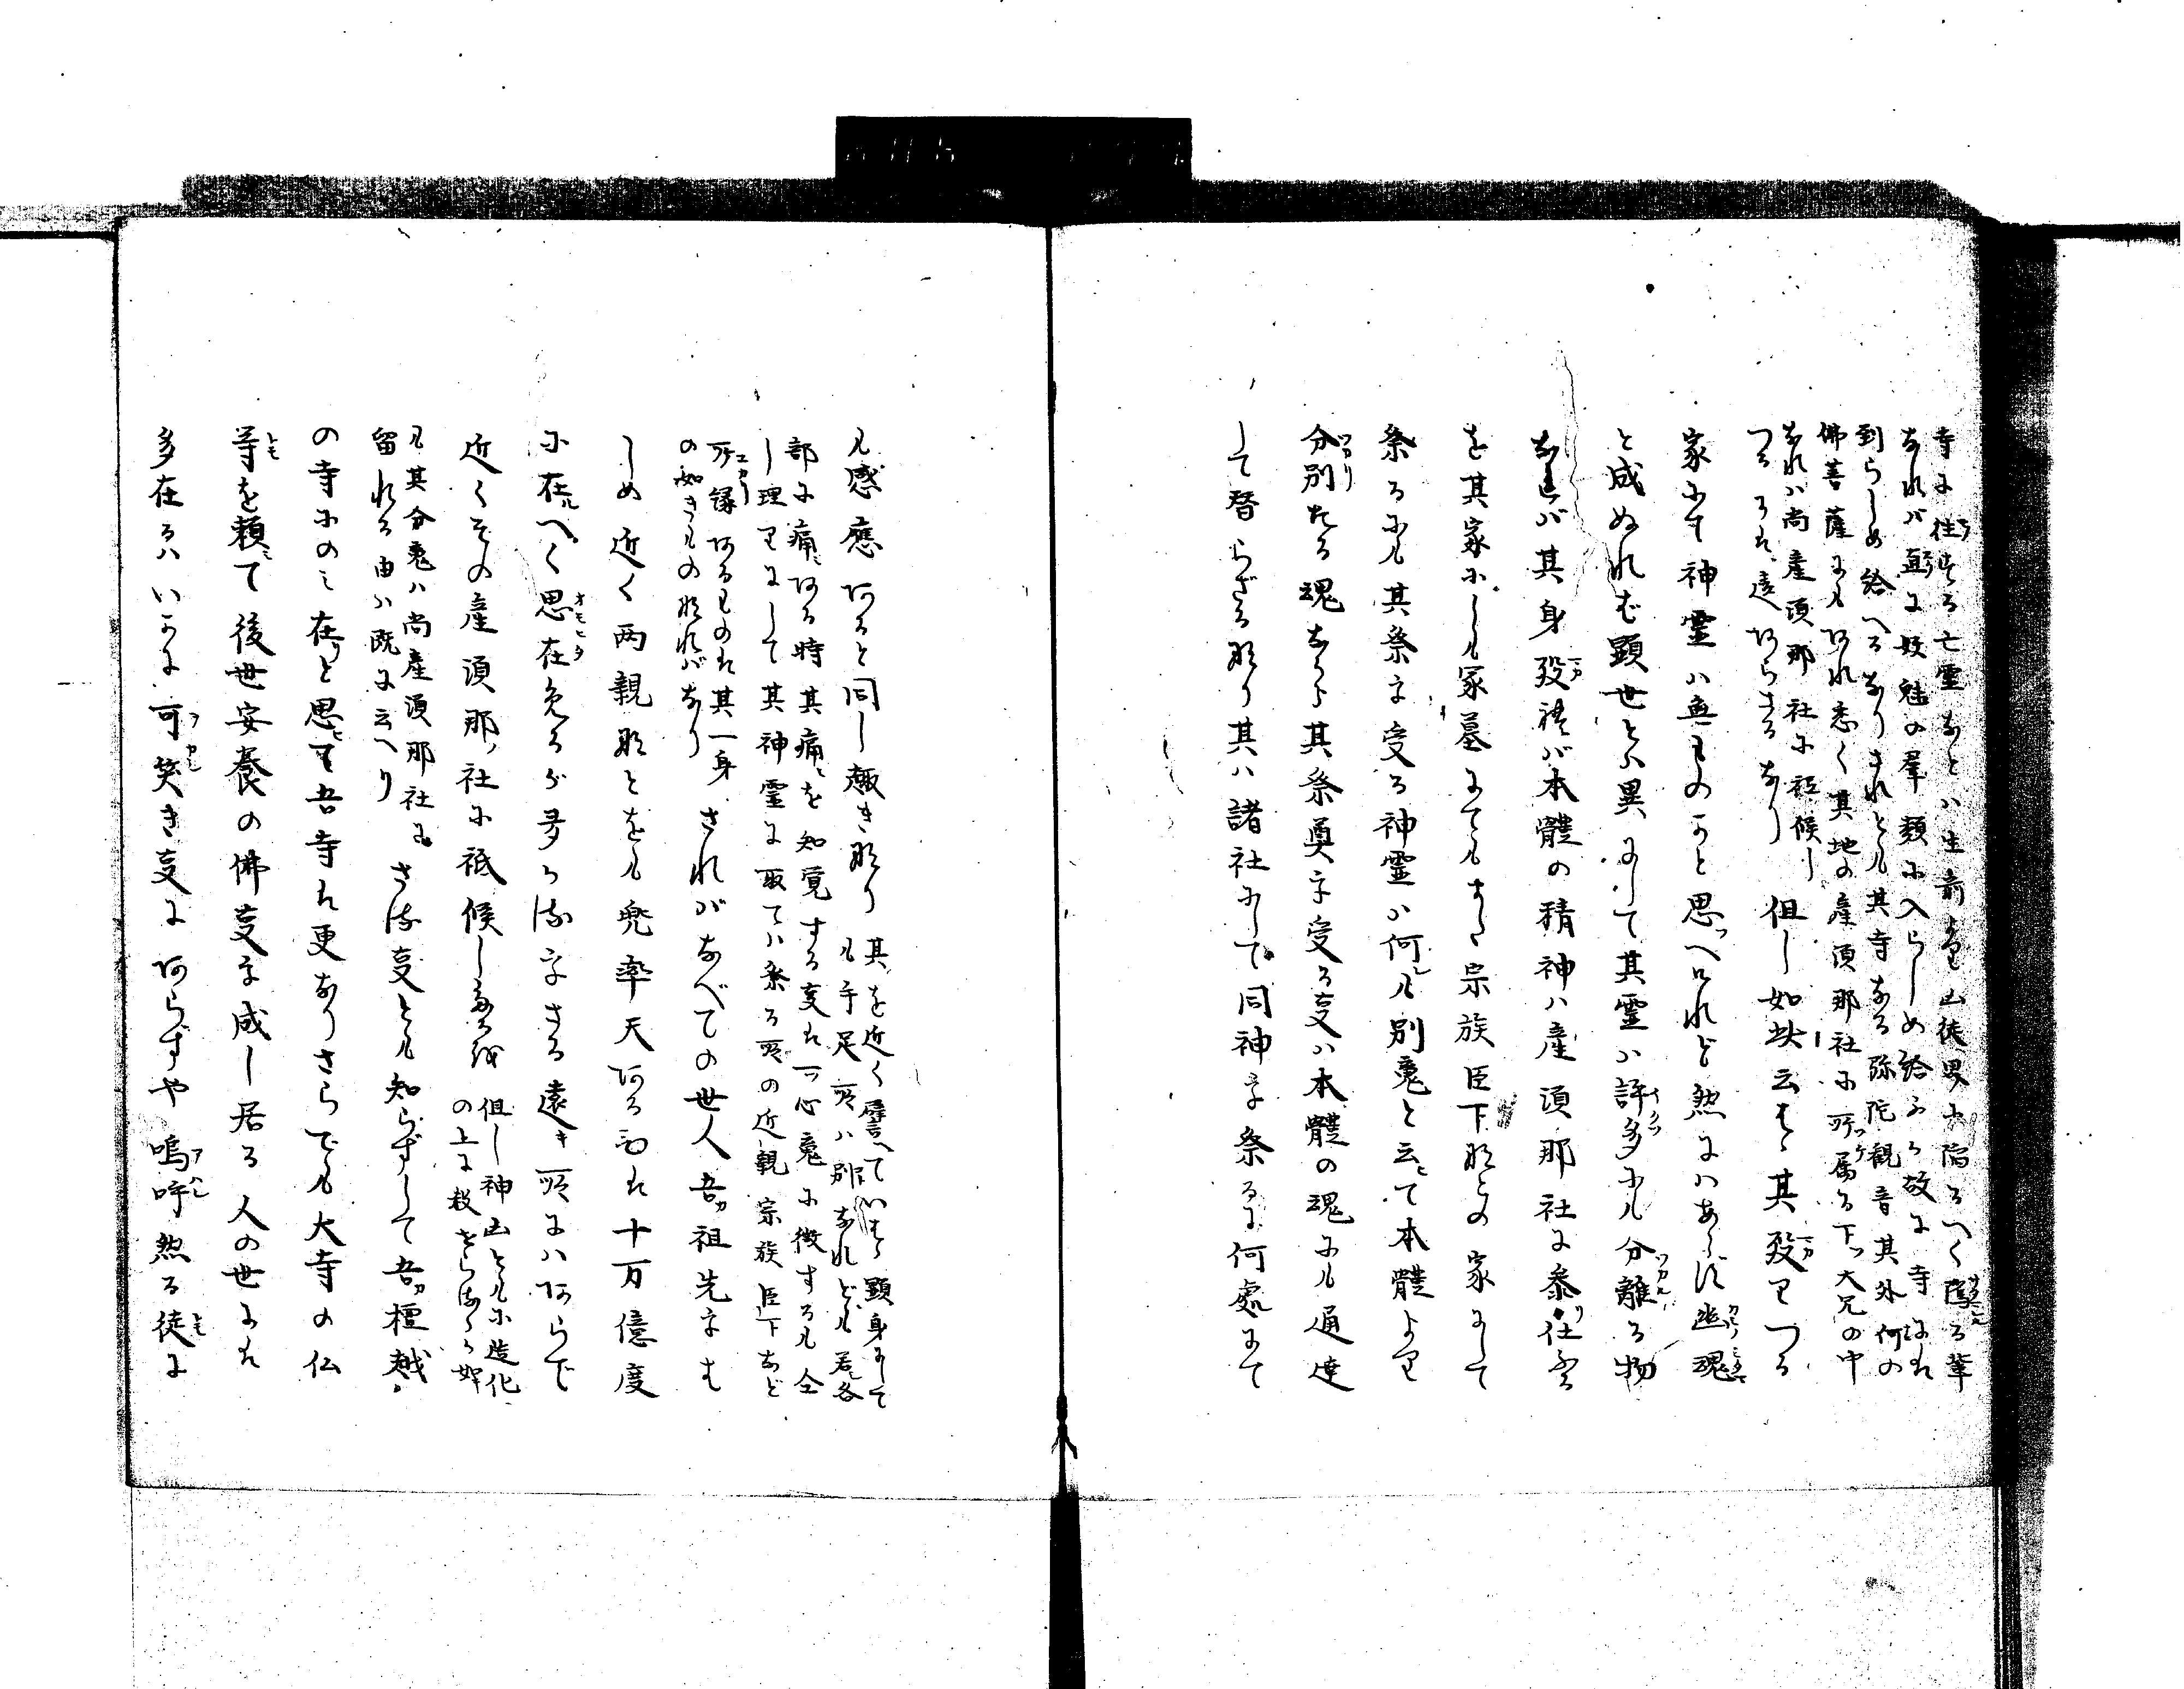 寺に往する亡霊などハ生前より山徒界に陥るべく蔭る輩
なれバ直に妖魅の羣類に入らしめ給ふが故に寺にハ
到らしめ給へるなりされども其寺なる弥陀観音其外何の
佛菩薩にもあれ悉く其地の産須那社に所属る下つ大兄の中
なれハ尚産須那社に祗候し
つるにハ違あらざるなり 但し如此云はゞ其歿りつる
家にて神霊ハ無ものかと思へれど然にハあらず幽魂
と成ぬれば顕世とハ異にして其霊ハ許多にも分離る物
なれバ其身歿ぬれバ本體の精神ハ産須那社に参仕
を其家にしも冢墓にてもまた宗族臣下などの家にして
祭るにも其祭を受る神霊ハ何も別魂と云て本體より
分別たる魂ながら其祭奠を受る事ハ本體の魂にも通達
して替らざるなり其ハ諸社にして同神を祭るに何處にて
も感應あると同じ趣きなり 其を近く譬へていはゞ顕身にして
も手足所ハ別なれども若各
部に痛ある時其痛を知覚する事ハ心魂に徴するも仝
し理りにして其神霊に取てハ祭る所の近親宗族臣下など
所縁あるものハ其一身
の如きものなれバなり されバなべての世人吾祖先をは
しめ近く両親などをも兜率天あるいは十万億度
に在べく思在めるが多かるをさる遠き所にハあらで
近くその産須那ノ社に祗候し 但し神幽ともに造化
の上に
も其分魂ハ尚産須那社に
留れる由ハ既に云へり さる事とも知らずして吾檀越
の寺にのミ在と思も吾寺ハ更なりさらでも大寺の仏
等を頼て後世安養の佛事を成し居る人の世には
多在るハいかに可笑き事にあらずや嗚呼然る徒に